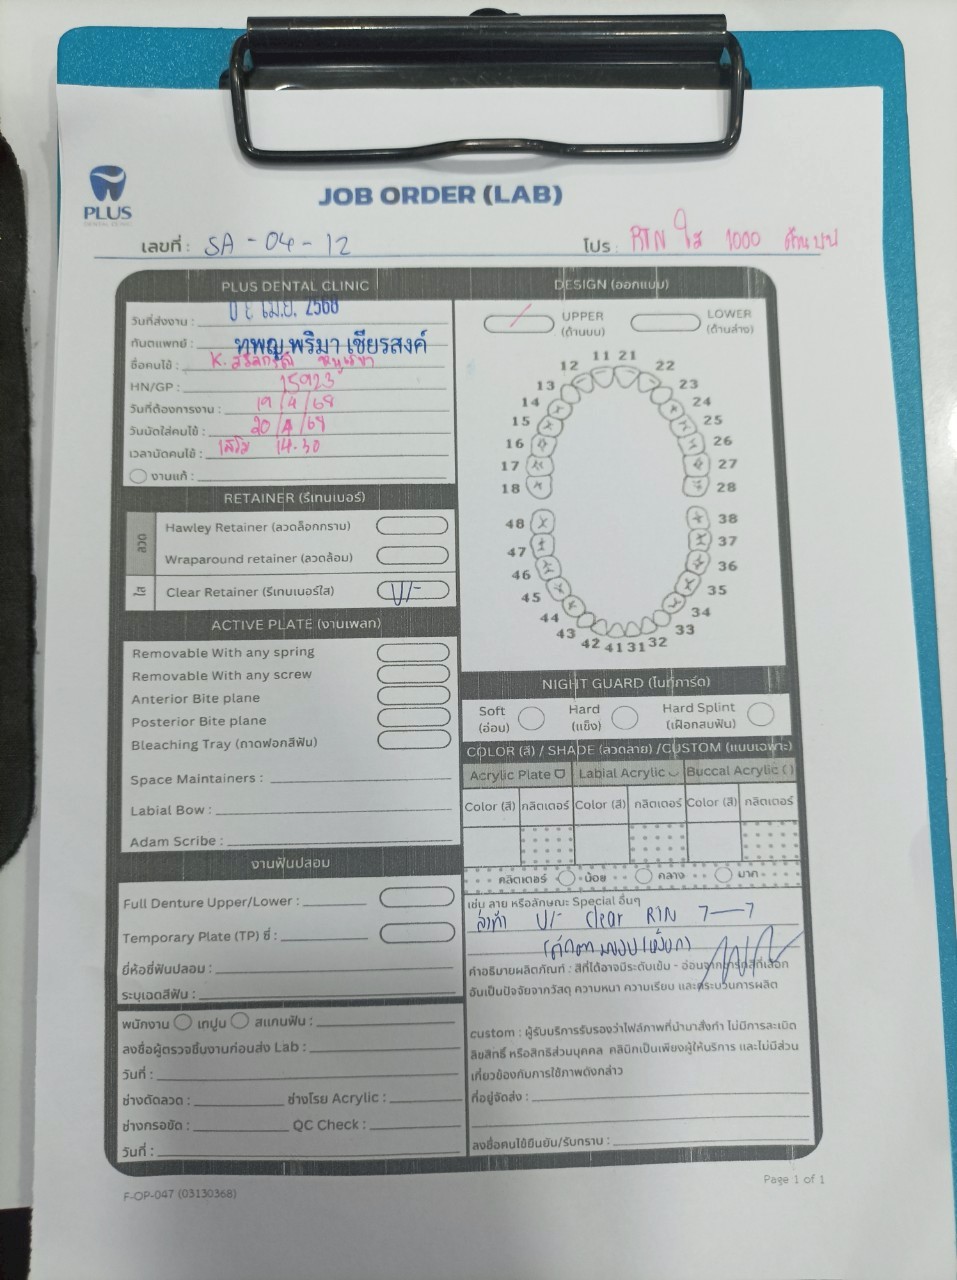 PLUS
DENTAL CLINIC
JOB ORDER (LAB)
เลขที่ : SA - 04 - 12
โปร : RTN ใส 1000 ด้านบน
PLUS DENTAL CLINIC
วันที่ส่งงาน : เม.ย. 2568
ทันตแพทย์ : ทพญ.พริมา เชียรสงค์
ชื่อคนไข้ : K.
HN/GP : 15923
วันที่ต้องการงาน : 19/4/68
วันนัดใส่คนไข้ : 20/4/68
เวลานัดคนไข้ : 14.30
งานแก้ :
RETAINER (รีเทนเนอร์)
ลวด
Hawley Retainer (ลวดล็อกกราม)
Wraparound retainer (ลวดล้อม)
ใส
Clear Retainer (รีเทนเนอร์ใส) U/-
ACTIVE PLATE (งานเพลท)
Removable With any spring
Removable With any screw
Anterior Bite plane
Posterior Bite plane
Bleaching Tray (ถาดฟอกสีฟัน)
Space Maintainers :
Labial Bow :
Adam Scribe :
งานฟันปลอม
Full Denture Upper/Lower :
Temporary Plate (TP) ซี่ :
ยี่ห้อซี่ฟันปลอม :
ระบุเฉดสีฟัน :
พนักงาน เทปูน สแกนฟัน :
ลงชื่อผู้ตรวจชิ้นงานก่อนส่ง Lab :
วันที่ :
ช่างดัดลวด : ช่างโรย Acrylic :
ช่างกรอขัด : QC Check :
วันที่ :
DESIGN (ออกแบบ)
UPPER (ด้านบน)
LOWER (ด้านล่าง)
11 21
12 22
13 23
14 24
15 25
16 26
17 27
18 28
48 38
47 37
46 36
45 35
44 34
43 33
42 41 31 32
NIGHT GUARD (ไนท์การ์ด)
Soft (อ่อน)
Hard (แข็ง)
Hard Splint (เฝือกสบฟัน)
COLOR (สี) / SHADE (ลวดลาย) /CUSTOM (แบบเฉพาะ)
Acrylic Plate Labial Acrylic Buccal Acrylic ( )
Color (สี) กลิตเตอร์ Color (สี) กลิตเตอร์ Color (สี) กลิตเตอร์
กลิตเตอร์ น้อย กลาง มาก
เช่น ลาย หรือลักษณะ Special อื่นๆ
U/- clear RTN 7—7
(ตัดตามขอบเหงือก)
คำอธิบายผลิตภัณฑ์ : สีที่ได้อาจมีระดับเข้ม - อ่อนจากชาร์ทสีที่เลือก
อันเป็นปัจจัยจากวัสดุ ความหนา ความเรียบ และกระบวนการผลิต
custom : ผู้รับบริการรับรองว่าไฟล์ภาพที่นำมาสั่งทำ ไม่มีการละเมิด
ลิขสิทธิ์ หรือสิทธิส่วนบุคคล คลินิกเป็นเพียงผู้ให้บริการ และไม่มีส่วน
เกี่ยวข้องกับการใช้ภาพดังกล่าว
ที่อยู่จัดส่ง :
ลงชื่อคนไข้ยืนยัน/รับทราบ :
F-OP-047 (03130368)
Page 1 of 1